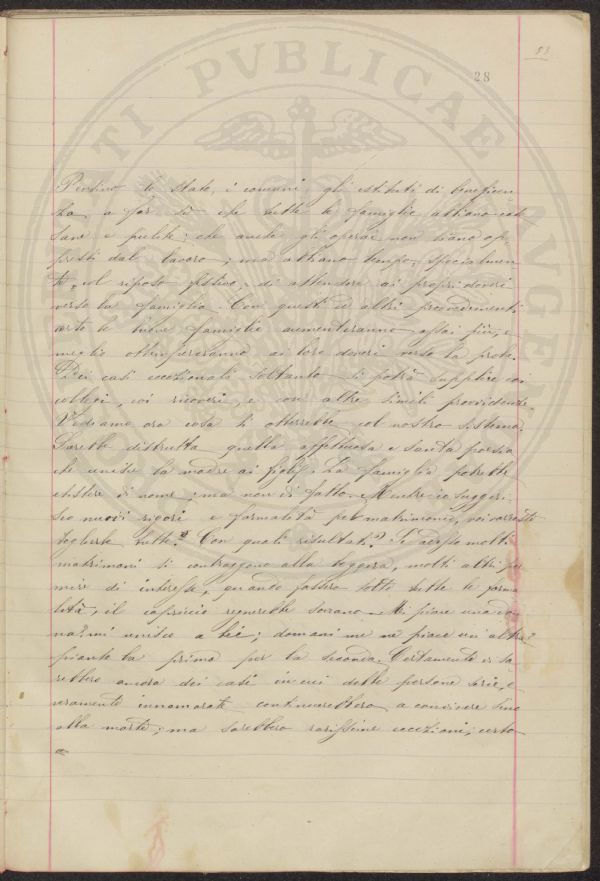 83
28
TI PVBLICAE AVGEN
Pensino lo stato, i comuni, gli istituti di beneficen
za a far sì che tutte le famiglie abbiano cas
sane e pulite; che anche gli operai non siano op-
pressi dal lavoro; ma abbiano tempo, specialmen
te col riposo festivo, di attendere ai propri doveri
verso la famiglia. Con questi ed altri provvedimenti
certo le buone famiglie aumenteranno assai più, e
meglio ottempereranno ai loro doveri verso la prole.
Nei casi eccezionali soltanto si potrà supplire coi
collegi, coi ricoveri, e con altre simili provvidenze.
Vediamo ora cosa si otterrebbe col nostro sistema.
Sarebbe distrutta quella affettuosa e santa poesia
che unisce la madre ai figli. La famiglia potrebbe
esistere di nome; ma non di fatto. Mentre io suggeri-
sco nuovi rigori e formalità pel matrimonio, voi vorreste
toglierle tutte? Con quali risultati? Se adesso molti
matrimoni si contraggono alla leggera, molti altri per
mire di interesse, quando fossero tolte tutte le forma
lità, il capriccio regnerebbe sovrano. Mi piace una don
na? mi unisco a lei; domani me ne piace un'altra?
pianto la prima per la seconda. Certamente vi sa
rebbero ancora dei casi in cui dette persone serie, e
veramente innamorate continuerebbero a convivere sino
alla morte; ma sarebbero rarissime eccezioni; certo